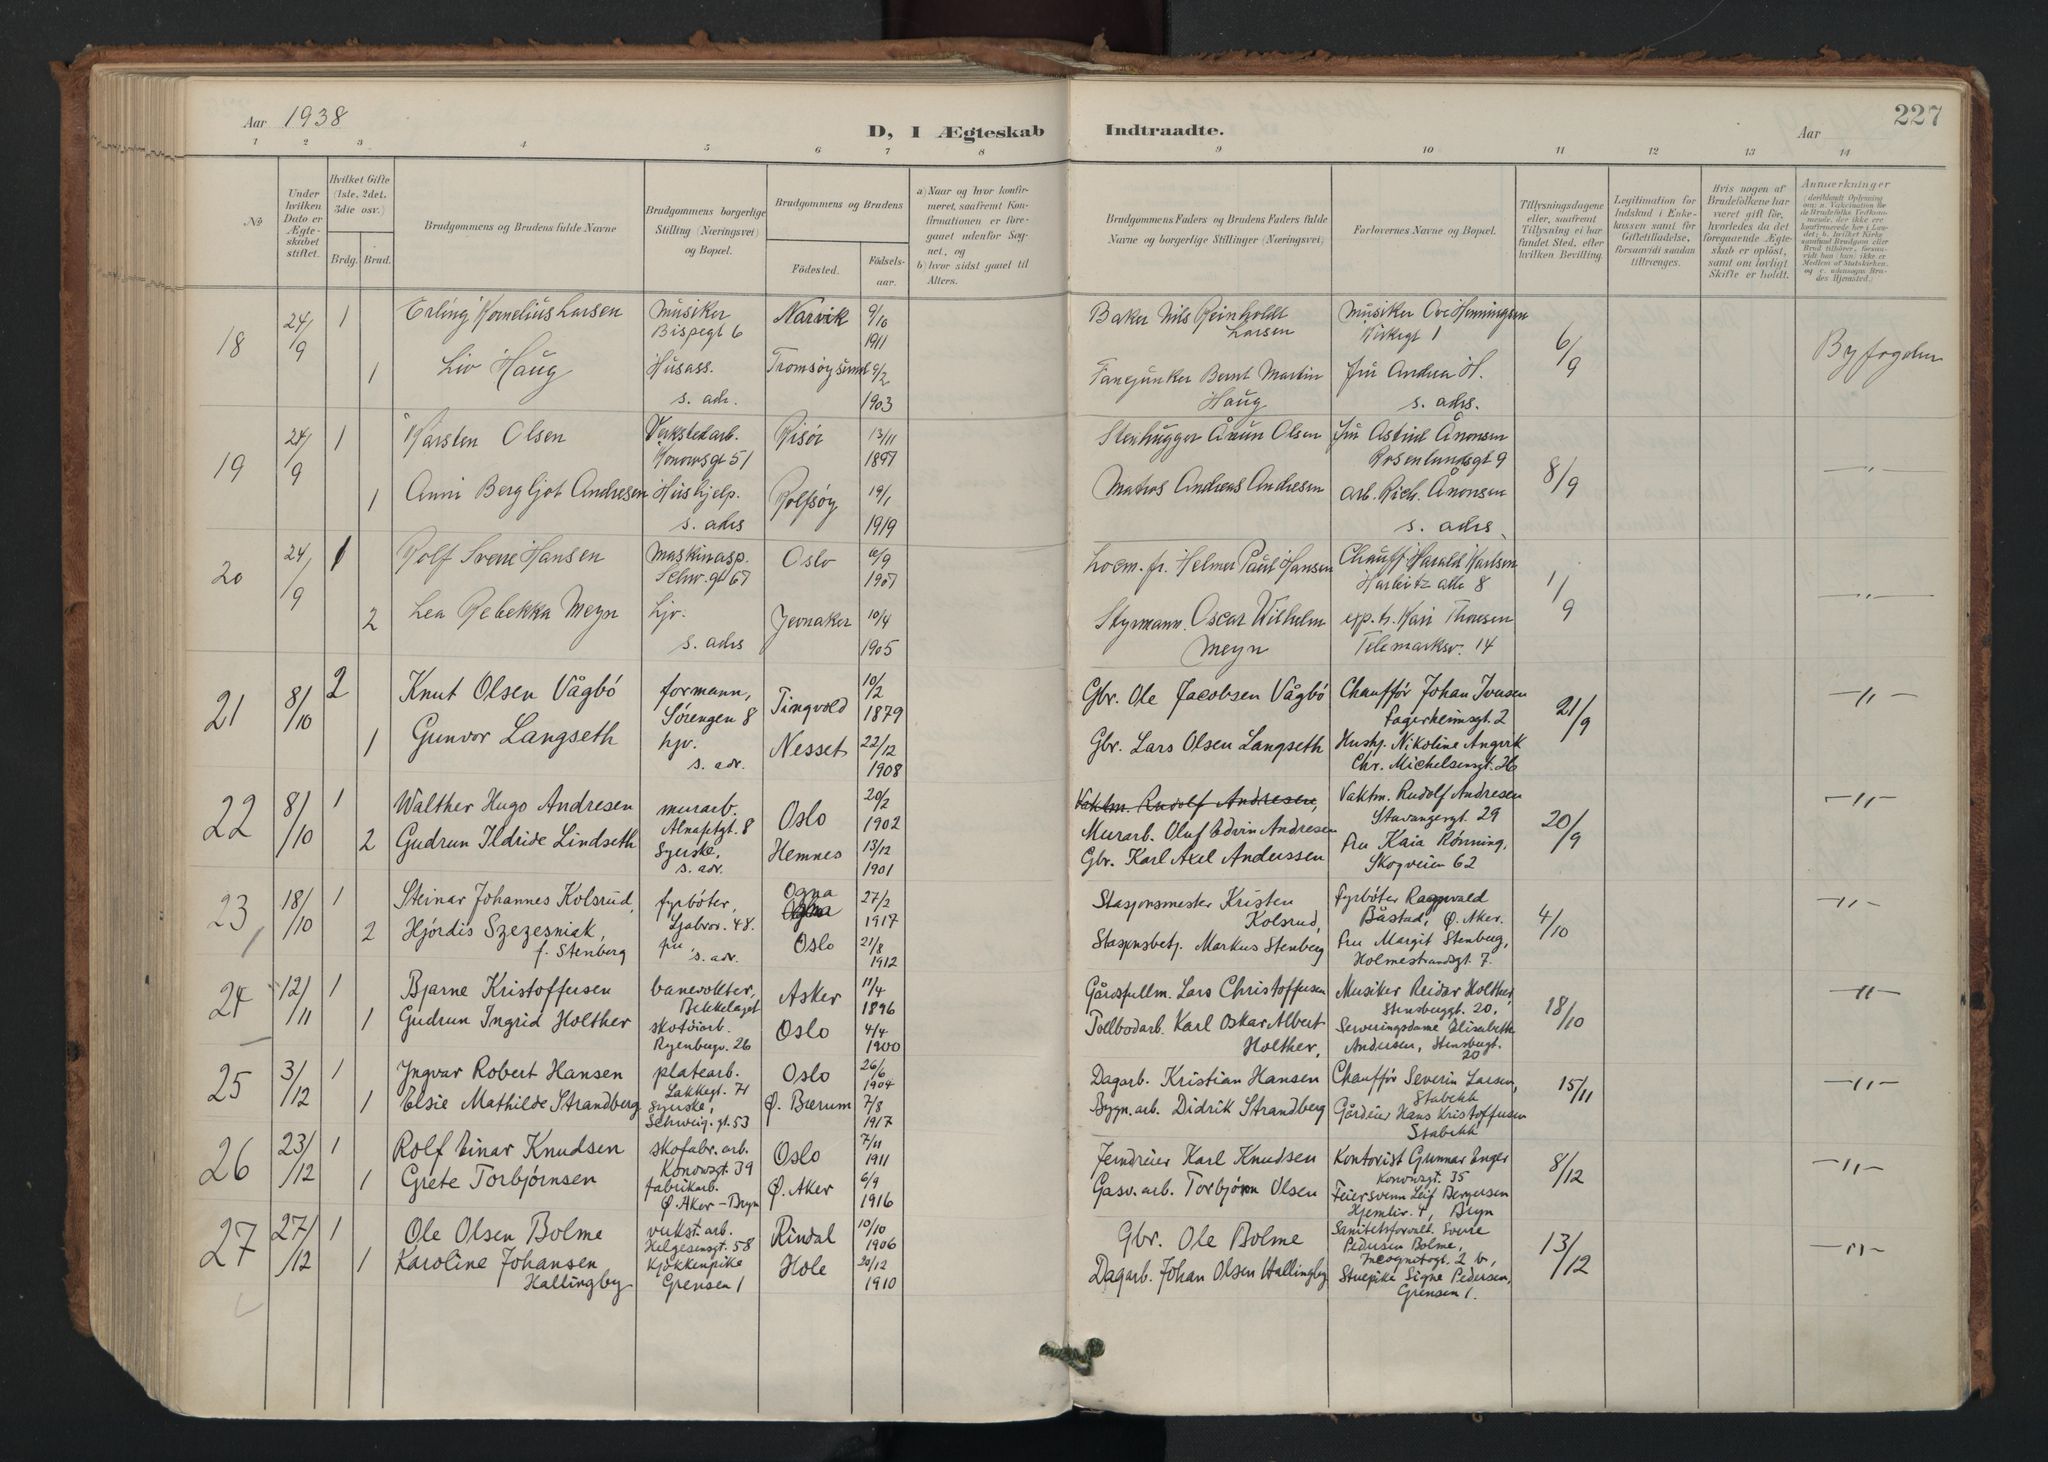 Aar 1938
D, I Ægteskab Indtraadte.
Aar
227
1 2 3 4 5 6 7 8 9 10 11 12 13 14
No
Under hvilken Dato er Ægteskabet stiftet.
Hvilket Gifte (1ste, 2det, 3die osv.)
Brdg. Brud.
Brudgommens og Brudens fulde Navne
Brudgommens borgerlige Stilling (Næringsvei) og Bopæl.
Brudgommens og Brudens
Fødested. Fødselsaar.
a) Naar og hvor konfirmeret, saafremt Konfirmationen er foregaaet udenfor Sognet, og
b) hvor sidst gaaet til Alters.
Brudgommens Faders og Brudens Faders fulde Navne og borgerlige Stillinger (Næringsvei)
Forlovernes Navne og Bopæl.
Tillysningsdagene eller, saafremt Tillysning ei har fundet Sted, efter hvilken Bevilling.
Legitimation for Indskud i Enkekassen samt for Giftetilladelse, forsaavidt saadan tiltrænges.
Hvis nogen af Brudefolkene har været gift før, hvorledes da det foregaaende Ægteskab er opløst, samt om lovligt Skifte er holdt.
Anmærkninger
18 24/9 1 Erling Kornelius Larsen Musiker Bispegt 6 Narvik 9/10 1911 Baker Nils Reinholdt Larsen Musiker Ove Henningsen Kirkegt 1 6/9 Byfogden
1 Liv Haug Husass. s. adr. Tromsøysund 9/2 1903 Fanejunker Bernt Martin Haug fru Andrea H. s. adrs.
19 24/9 1 Karsten Olsen Verkstedarb. Konowsgt 51 Risør 13/11 1897 Stenhugger Ånun Olsen fru Astrid Ånonsen Rosenlundsgt 9 8/9 —"—
1 Anni Bergljot Andresen Hushjelp. s. adrs Rolfsøy 19/1 1919 Matros Andreas Andresen arb. Rich. Ånonsen s. adrs.
20 24/9 1 Rolf Sverre Hansen Maskinasp. Schw. gt 67 Oslo 6/9 1907 Locm. fr. Helmer Paul Hansen Chauff. Harald Karlsen Harbitz alle 8 1/9 —"—
2 Lea Rebekka Meyn hjv. s. adrs Jevnaker 10/4 1905 Styrmann Oscar Wilhelm Meyn exp. fr. Kari Thoresen Telemarksv. 14
21 8/10 2 Knut Olsen Vågbö formann, Sörengen 8 Tingvold 10/2 1879 Gbr. Ole Jacobsen Vågbö Chauffør Johan Iversen Fagerheimsgt. 2 21/9 —"—
1 Gunvor Langseth hjv. s. adr. Nesset 22/12 1908 Gbr. Lars Olsen Langseth Hushj. Nikoline Angvik Chr. Michelsensgt. 26
22 8/10 1 Walther Hugo Andresen murarb. Alnafetgt. 8 Oslo 20/2 1902 Vaktm. Rudolf Andresen, Murarb. Oluf Edvin Andresen Vaktm. Rudolf Andresen Stavangergt. 29 20/9 —"—
2 Gudrun Ildride Lindseth Syerske, s. adr. Hemnes 13/12 1901 Gbr. Karl Axel Anderssen fru Kaia Rønning, Skogveien 62
23 18/10 1 Steinar Johannes Kolsrud, fyrbøter, Ljabrov. 48. Ogna 27/2 1917 Stasjonsmester Kristen Kolsrud, Fyrbøter Ragnvald Båstad, Ø. Aker. 4/10 —"—
2 Hjördis Szezesniak, f. Stenberg fru, s. adr. Oslo 21/8 1912 Stasjonsbetj. Markus Stenberg Fru Margit Stenberg, Holmestrandsgt. 7.
24 12/11 1 Bjarne Kristoffersen banevokter, Bekkelaget Asker 11/4 1896 Gårdsfullm. Lars Christoffersen Musiker Reidar Holther, Stensberggt. 20, 18/10 —"—
1 Gudrun Ingrid Holther skotöiarb. Ryenbergv. 26 Oslo 4/4 1900 Tollbodarb. Karl Oskar Albert Holther, Serveringsdame Elisabeth Andersen, Stensbergt. 20
25 3/12 1 Yngvar Robert Hansen platearb. Lakkegt. 71 Oslo 26/6 1904 Dagarb. Kristian Hansen Chauffør Severin Larsen, Stabekk 15/11 —"—
1 Elsie Mathilde Strandberg Syerske, Schweig. gt. 53 Ø. Bærum 7/8 1917 Bygn. arb. Didrik Strandberg Gårdeier Hans Kristoffersen Stabekk
26 23/12 1 Rolf Einar Knudsen skofabr. arb. Konowsgt. 39 Oslo 7/11 1911 Jerndreier Karl Knudsen Kontorist Gunnar Enger Konowsgt. 35 8/12 —"—
1 Grete Torbjørnsen fabrikarb. Ø. Aker - Bryn Ø. Aker 6/9 1916 Gasv. arb. Torbjørn Olsen Feiersvenn Leif Bergersen Hjemliv. 4, Bryn
27 27/12 1 Ole Olsen Bolme verkst. arb. Helgesensgt. 58 Rindal 10/10 1906 Gbr. Ole Bolme Sanitetsforvalt. Sverre Pedersen Bolme, Incognitogt. 2 b, 13/12 —"—
1 Karoline Johansen Hallingby Kjøkkenpike Grensen 1 Hole 30/12 1910 Dagarb. Johan Olsen Hallingby Stuepike Signe Pedersen, Grensen 1.